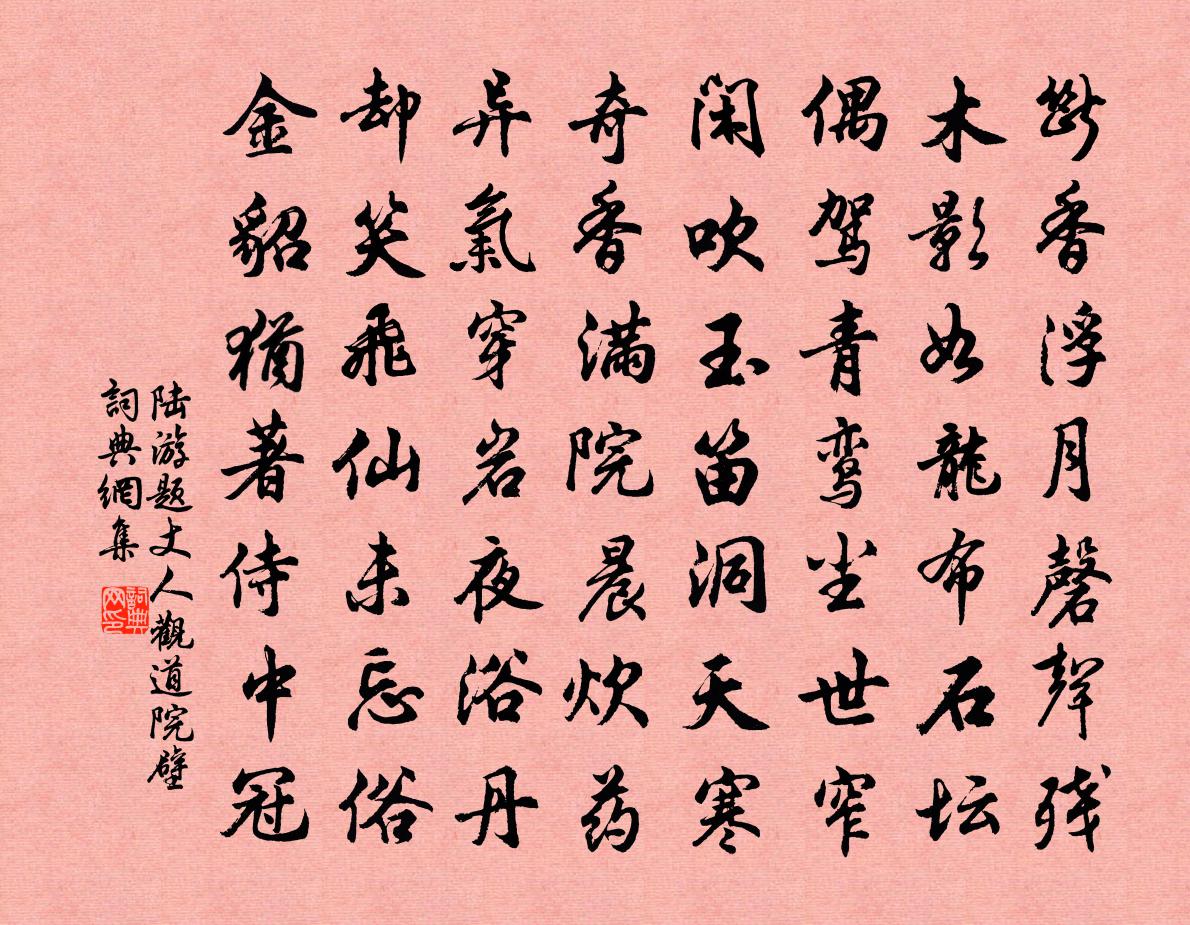 断香浮月磬声残
木影如龍布石坛
偶驾青鸾尘世窄
闲吹玉笛洞天寒
奇香满院晨炊药
异氣穿岩夜浴丹
却笑飛仙未忘俗
金貂猶著侍中冠
陆游题丈人觀道院壁
詞典網集
詞典网印